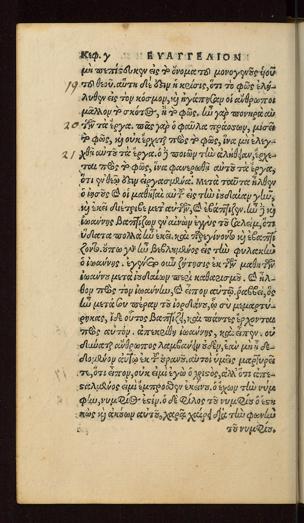 Κεφ. γ ΕΥΑΓΓΕΛΙΟΝ
μὴ πεπίστευκεν εἰς τὸ ὄνομα τοῦ μονογενοῦς ὑιοῦ
19 τοῦ θεοῦ. αὕτη δέ ὅξιν ἡ κρίσις, ὅτι τὸ φῶς ἐλή-
λυθεν εἰς τὸν κόσμον, κὴ ἠγάπησαν οἱ ἄνθρωποι
μᾶλλον τὸ σκότος, ἢ τὸ φῶς. ἦν γὰρ πονηρὰ αὐ
20 τῶν τὰ ἔργα. πᾶς γὰρ ὁ φαῦλα πράσσων, μισεῖ
τὸ φῶς, καὶ οὐκ ἔρχεται πρὸς τὸ φῶς, ἵνα μὴ ἐλεγ-
21 χθῇ αὐτοῦ τὰ ἔργα. ὁ δὲ ποιῶν τὴν ἀλήθειαν, ἔρχε-
ται πρὸς τὸ φῶς, ἵνα φανερωθῇ αὐτοῦ τὰ ἔργα,
ὅτι ἐν θεῷ ὅξιν ἐργασμένα. Μετὰ ταῦτα ἦλθεν
ὁ ἰησοῦς καὶ οἱ μαθηταὶ αὐτοῦ εἰς τὴν ἰουδαίαν γῆν,
καὶ ἐκεῖ διέτριβε μετ' αὐτῶν, καὶ ἐβάπτιζεν. ἦν δὲ καὶ
ἰωάννης βαπτίζων ἐν αἰνὼν ἐγγὺς τοῦ σαλείμ, ὅτι
ὕδατα πολλὰ ἦν ἐκεῖ. καὶ παρεγίνοντο καὶ ἐβαπτί-
ζοντο. οὔπω γὰρ ἦν βεβλημένος εἰς τὴν φυλακὴν
ὁ ἰωάννης. ἐγένετο οὖν ζήτησις ἐκ τῶν μαθητῶν
ἰωάννου μετὰ ἰουδαίων περὶ καθαρισμοῦ. καὶ ἦλ-
θον πρὸς τὸν ἰωάννην, καὶ εἶπον αὐτῷ, ῥαββεί, ὃς
ἦν μετὰ σοῦ πέραν τοῦ ἰορδάνου, ᾧ σὺ μεμαρτύ-
ρηκας, ἴδε οὗτος βαπτίζει, καὶ πάντες ἔρχονται
πρὸς αὐτόν. ἀπεκρίθη ἰωάννης, καὶ εἶπεν. οὐ
δύναται ἄνθρωπος λαμβάνειν οὐδὲν, ἐὰν μὴ ᾖ δε-
δομένον αὐτῷ ἐκ τοῦ οὐρανοῦ. αὐτοὶ ὑμεῖς μαρτυρεῖ-
τε, ὅτι εἶπον, οὐκ εἰμὶ ἐγὼ ὁ χριστὸς, ἀλλ' ὅτι ἀπε-
σταλμένος εἰμὶ ἔμπροσθεν ἐκείνου. ὁ ἔχων τὴν νύμ-
φην, νυμφίος ἐστίν. ὁ δὲ φίλος τοῦ νυμφίου ὁ ἑστη-
κὼς καὶ ἀκούων αὐτοῦ, χαρᾷ χαίρει διὰ τὴν φωνὴν
τοῦ νυμφίου.